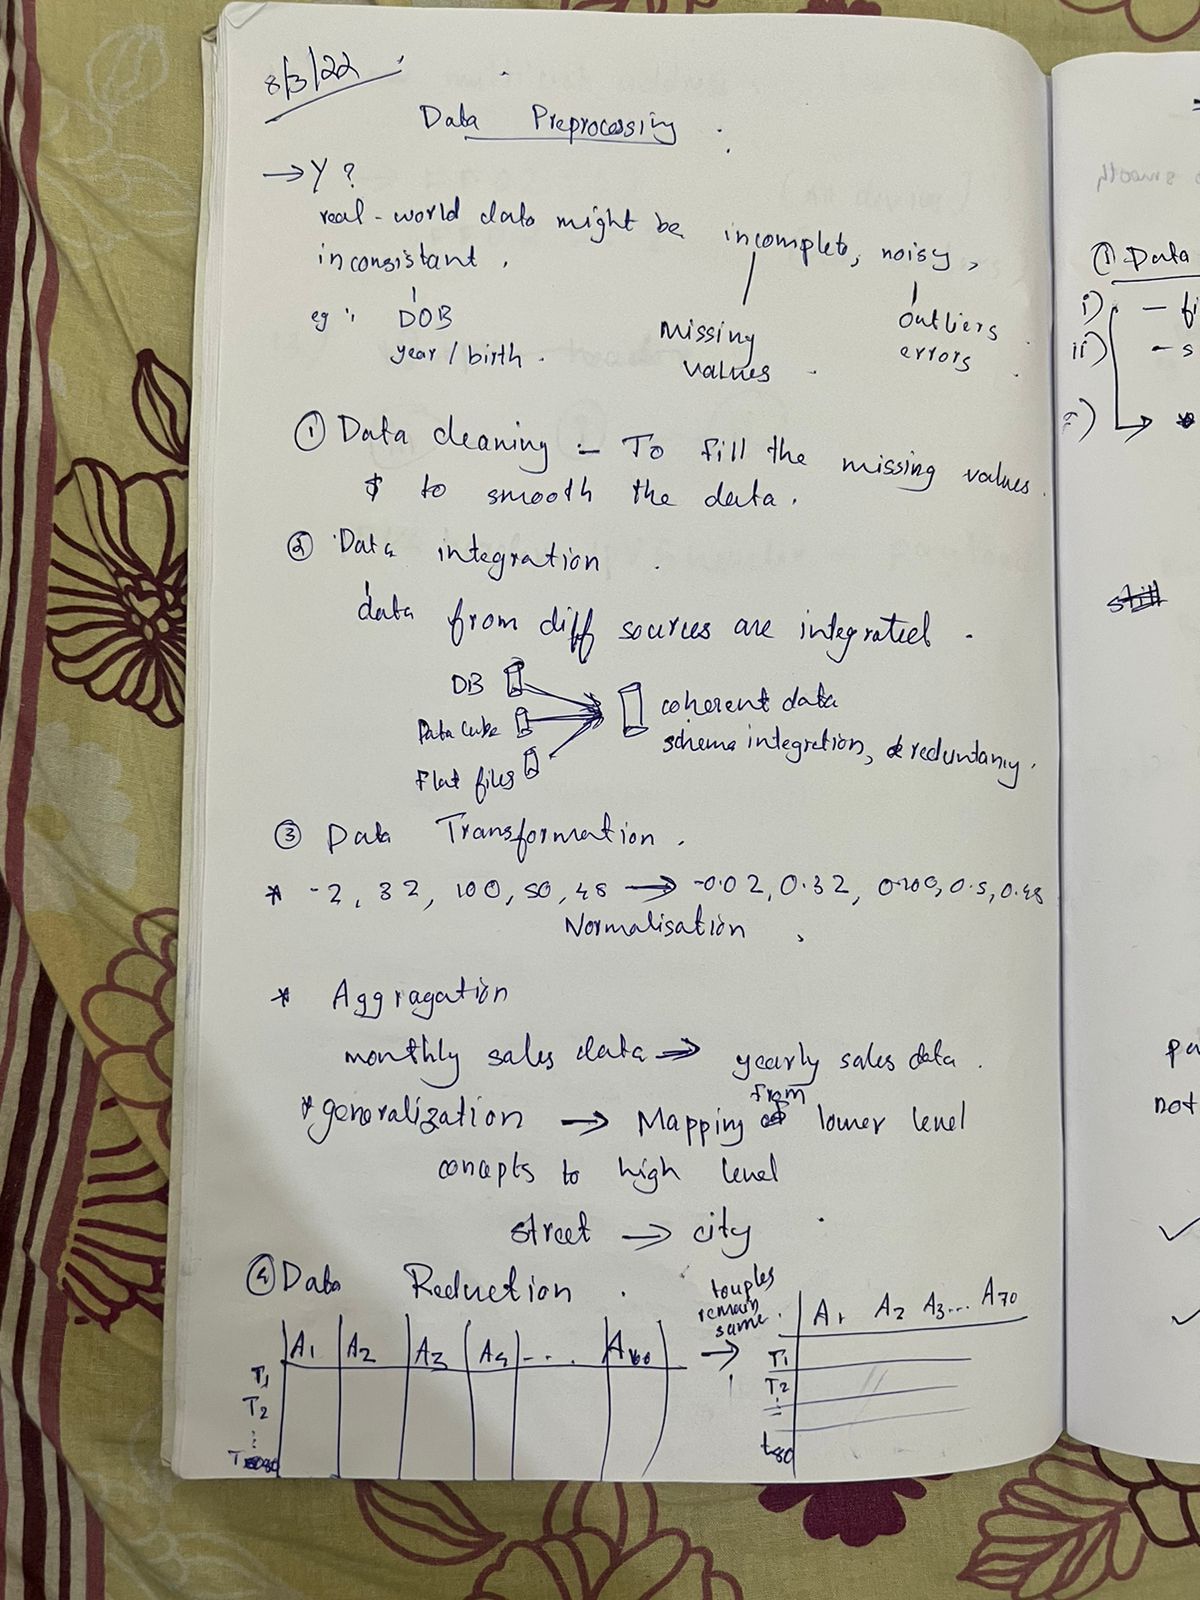 8/3/22
Data Preprocessing .
→ Y ?
real-world data might be incomplete, noisy,
inconsistant ,
eg : DOB
year / birth .
Missing
values .
outliers
errors
① Data cleaning :- To fill the missing values.
$ to smooth the data.
② Data integration .
data from diff sources are integrated .
DB
Data Cube
Flat files
coherent data
schema integretion, & reduntancy.
③ Data Transformation .
* -2, 32, 100, 50, 48 → -0.02, 0.32, 0.100, 0.5, 0.48
Normalisation
* Aggragation
monthly sales data → yearly sales data .
* generalization → Mapping from lower level
concepts to high level
street → city
④ Data Reduction .
A1 A2 A3 A4 - - . . A100
T1
T2
⋮
→
touples
remain
same .
A1 A2 A3... A70
T1
T2
⋮
t80
① Data
i) - fi
ii) - s
pa
not